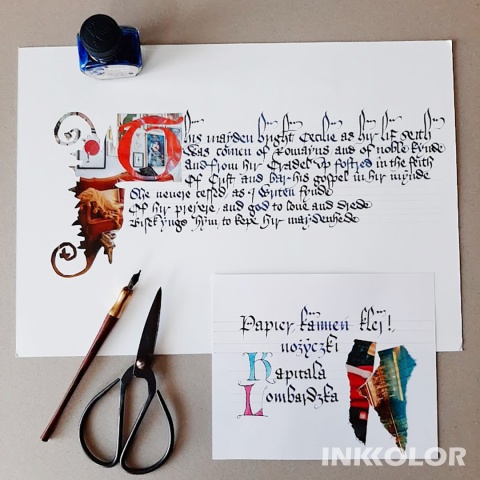 This mayden bright Cecilie as hir lif seith
Was comen of Romayns and of noble kinde
and from hir Cradel up fostred in the feith
Of Crist and bar his gospel in hir mynde
She nevere cessed as I writen finde
Of hir preyere, and god to love and drede
Bisekynge hym to kepe hir maydenhede
Papier, kamień klej!,
nożyczki
Kapitała
Lombardzka
INKKOLOR